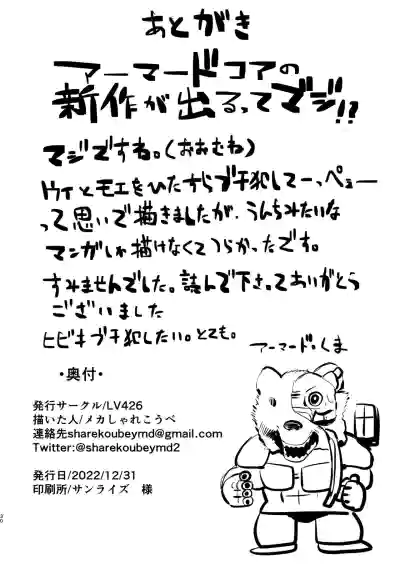 あとがき
アーマードコアの
新作が出るってマジ!?
マジですね。(おおむね)
ウイとモエをひたすらブチ犯してーっぺェー
って思いで描きましたが、うんちみたいな
マンガしか描けなくてつらかったです。
すみませんでした。読んで下さってありがとう
ございました
ヒビキブチ犯したい。とても。
アーマード・くま
・奥付・
発行サークル/LV426
描いた人/メカしゃれこうべ
連絡先sharekoubeymd@gmail.com
Twitter:@sharekoubeymd2
発行日/2022/12/31
印刷所/サンライズ 様